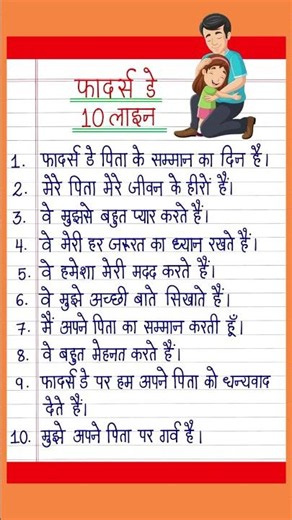 फादर्स डे
10 लाइन
1. फादर्स डे पिता के सम्मान का दिन है।
2. मेरे पिता मेरे जीवन के हीरो हैं।
3. वे मुझसे बहुत प्यार करते हैं।
4. वे मेरी हर जरूरत का ध्यान रखते हैं।
5. वे हमेशा मेरी मदद करते हैं।
6. वे मुझे अच्छी बाते सिखाते हैं।
7. मैं अपने पिता का सम्मान करती हूँ।
8. वे बहुत मेहनत करते हैं।
9. फादर्स डे पर हम अपने पिता को धन्यवाद
देते हैं।
10. मुझे अपने पिता पर गर्व है।